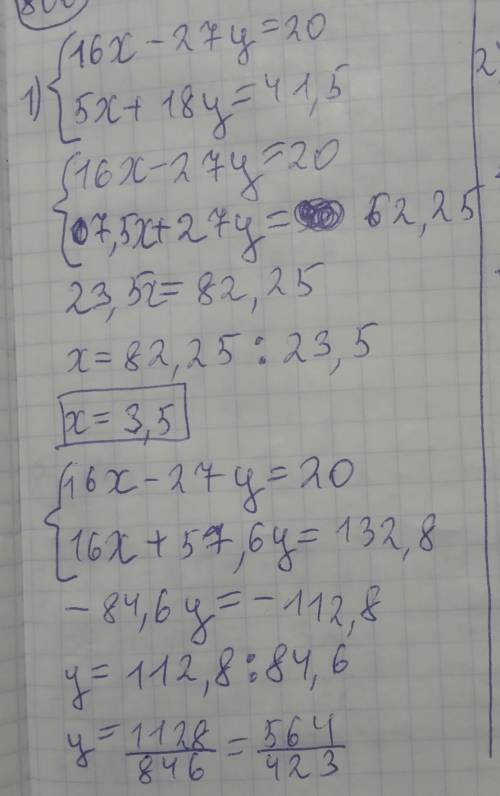 1) { 16x - 27y = 20
5x + 18y = 41,5
{ 16x - 27y = 20
7,5x + 27y = 62,25
23,5x = 82,25
x = 82,25 : 23,5
x = 3,5
{ 16x - 27y = 20
16x + 57,6y = 132,8
- 84,6y = - 112,8
y = 112,8 : 84,6
y = 1128/846 = 564/423